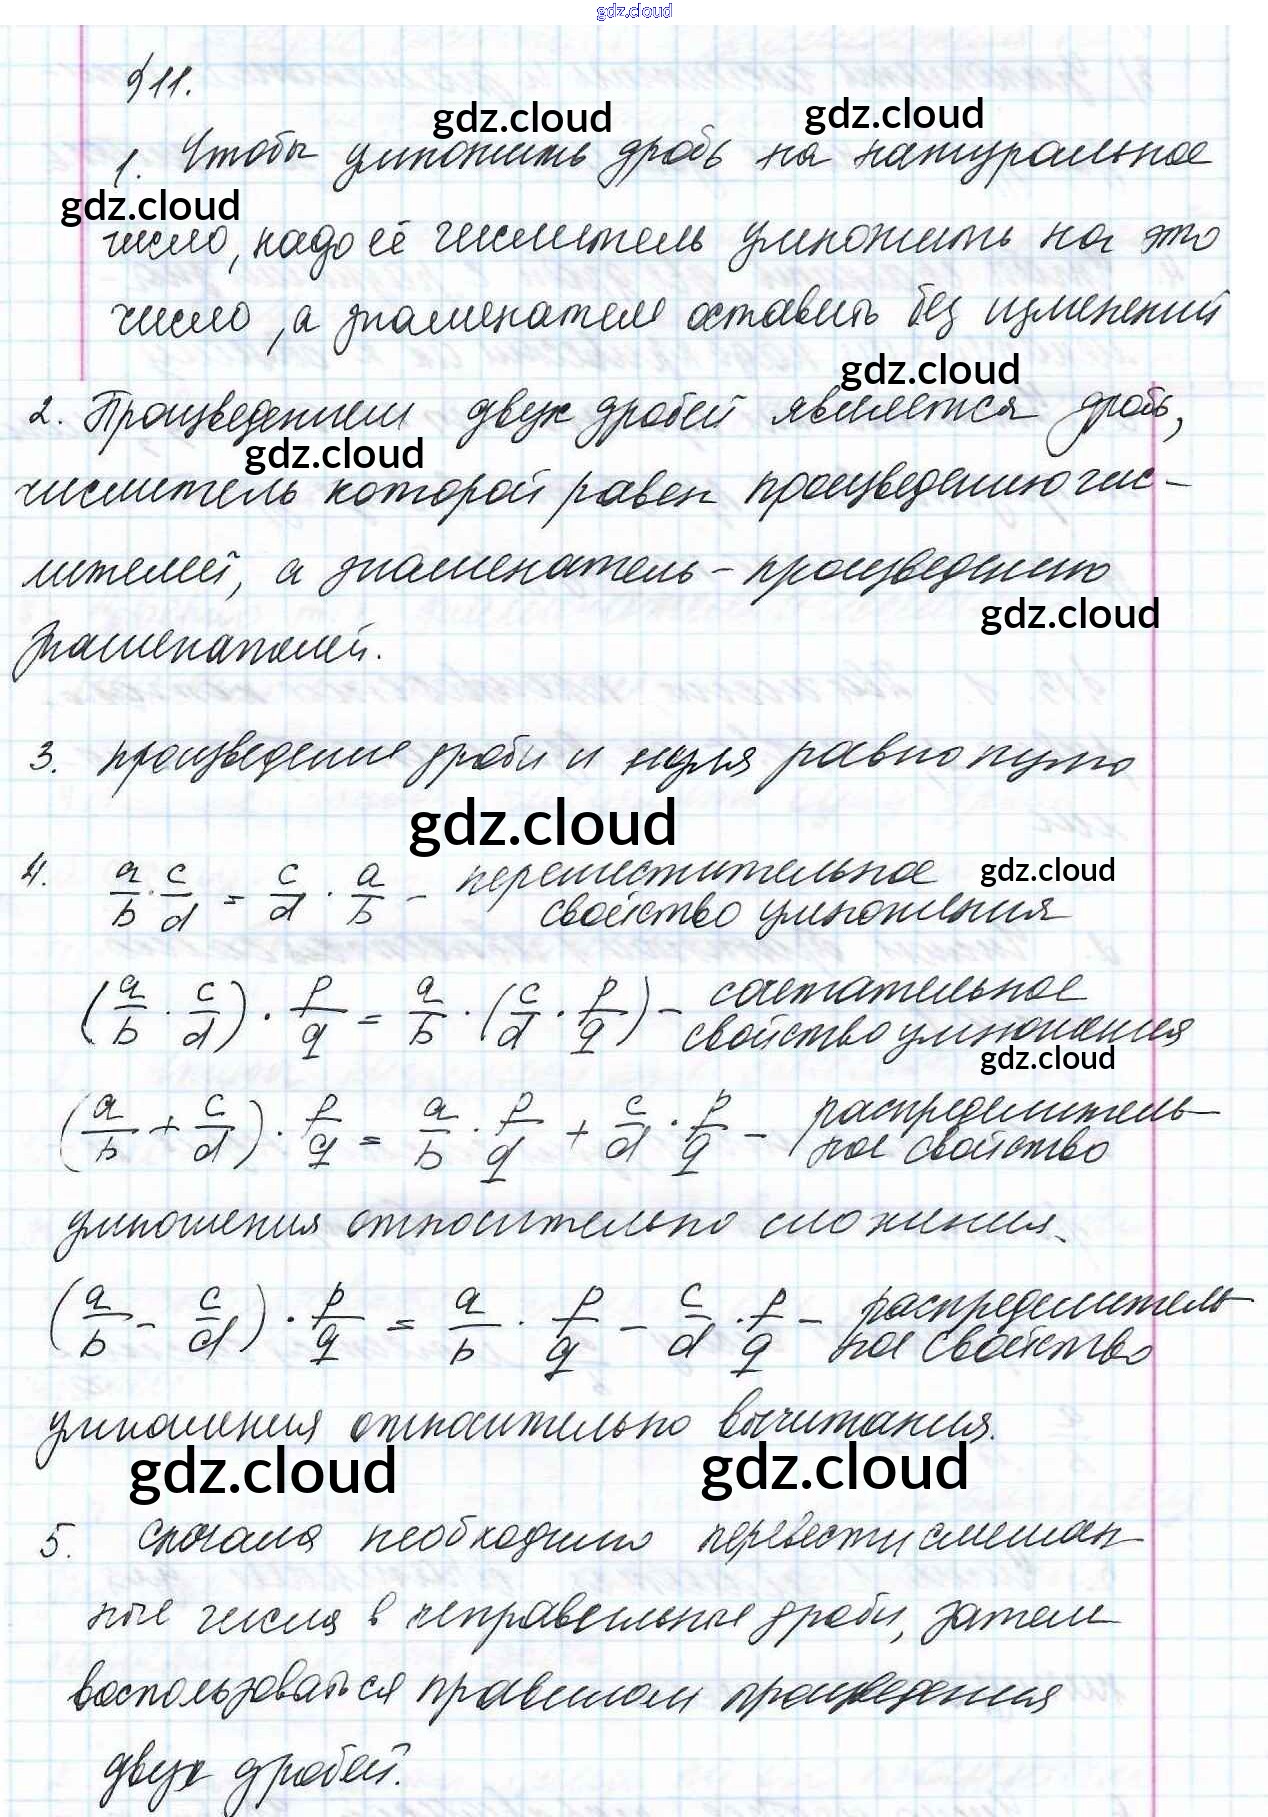 gdz.cloud
§ 11.
gdz.cloud gdz.cloud
1. Чтобы умножить дробь на натуральное
gdz.cloud
число, надо её числитель умножить на это
число, а знаменателем оставить без изменений
gdz.cloud
2. Произведением двух дробей является дробь,
gdz.cloud
числитель которой равен произведению чис-
лителей, а знаменатель - произведению
gdz.cloud
знаменателей.
3. произведение дроби и нуля равно нулю
gdz.cloud
4. a/b · c/d = c/d · a/b - переместительное
gdz.cloud
свойство умножения
(a/b · c/d) · p/q = a/b · (c/d · p/q) - сочетательное
свойство умножения
gdz.cloud
(a/b + c/d) · p/q = a/b · p/q + c/d · p/q - распределитель
ное свойство
умножения относительно сложения.
(a/b - c/d) · p/q = a/b · p/q - c/d · p/q - распределитель
ное свойство
умножения относительно вычитания.
gdz.cloud gdz.cloud
5. Сначала необходимо перевести смешан-
ные числа в неправильные дроби, затем
воспользоваться правилом произведения
двух дробей.